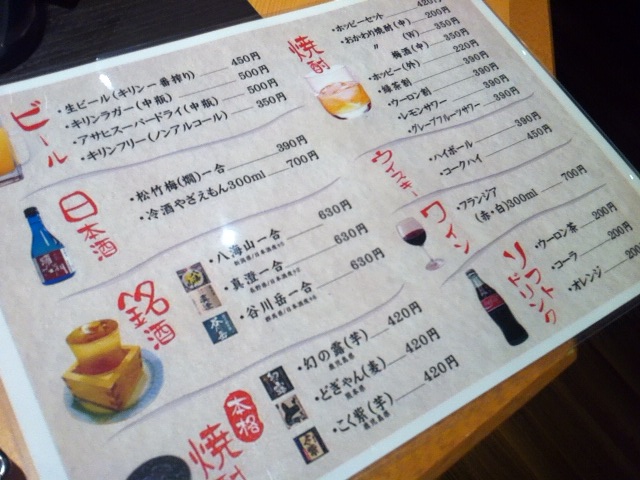 ビール
・生ビール(キリン一番搾り) 450円
・キリンラガー(中瓶) 500円
・アサヒスーパードライ(中瓶) 500円
・キリンフリー(ノンアルコール) 350円
日本酒
・松竹梅(燗)一合 390円
・冷酒やざえもん300ml 700円
銘酒
・八海山一合 630円
・真澄一合 630円
・谷川岳一合 630円
本格
焼酎
・幻の露(芋) 420円
・どぎゃん(麦) 420円
・こく紫(芋) 420円
焼酎
・ホッピーセット 420円
・おかわり焼酎(中) 200円
〃 (W) 350円
梅酒(中) 350円
・ホッピー(外) 220円
・緑茶割 390円
・ウーロン割 390円
・レモンサワー 390円
・グレープフルーツサワー 390円
ウイスキー
・ハイボール 390円
・コークハイ 450円
ワイン
・フランジア
(赤・白)300ml 700円
ソフト
ドリンク
・ウーロン茶 200円
・コーラ 200円
・オレンジ